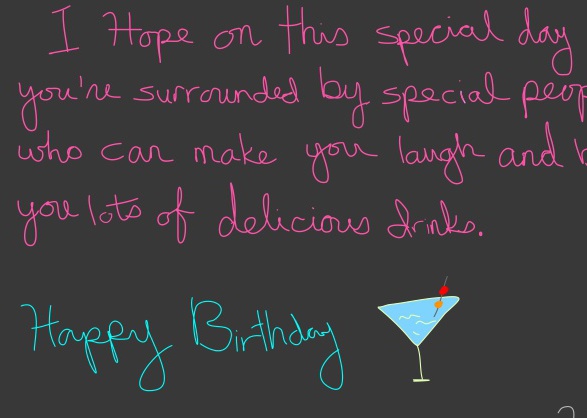 I Hope on this special day
you're surrounded by special peop
who can make you laugh and b
you lots of delicious drinks.
Happy Birthday